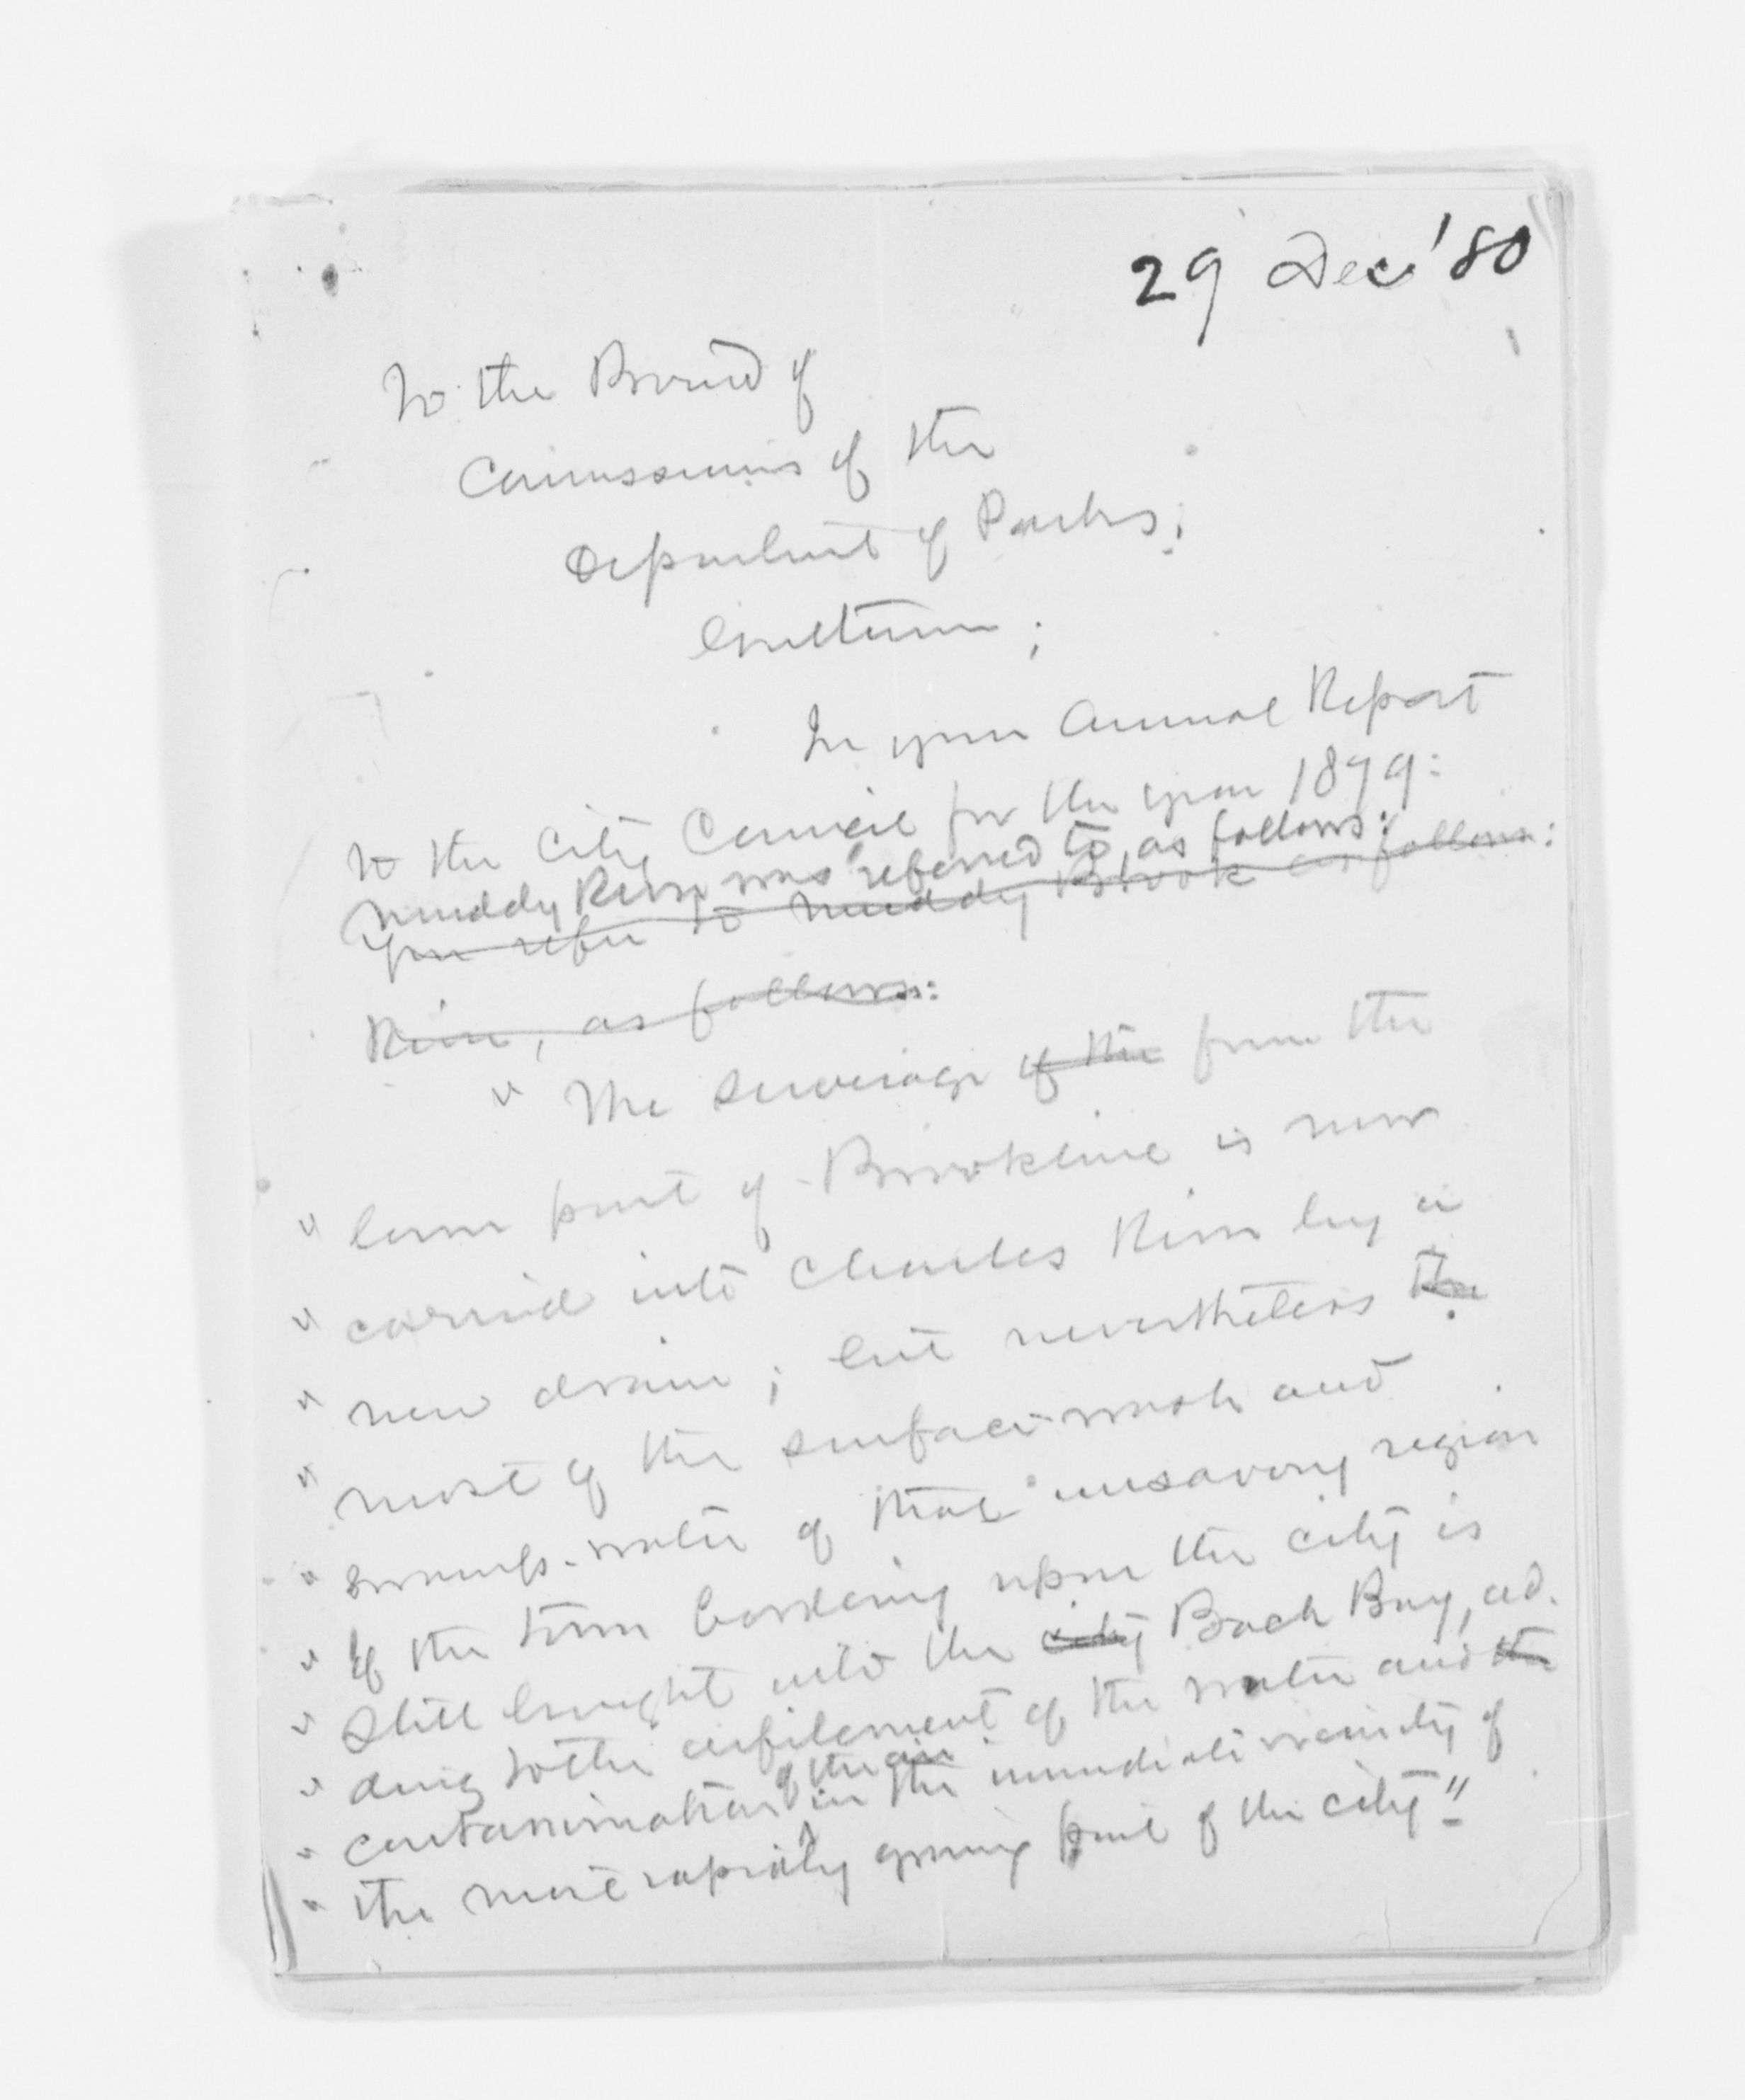 29 Dec '80
To the Board of
Commissioners of the
Department of Parks;
Gentlemen;
In your Annual Report
to the City Council for the year 1879:
Muddy River was referred to, as follows:
You refer to Muddy Brook as follows:
River, as follows:
" The sewerage of the from the
" lower part of Brookline is now
" carried into Charles River by a
" new drain; but nevertheless the
" most of the surface-wash and
" swamp-water of that unsavory region
" of the town bordering upon the city is
" still brought into the city Back Bay, ad-
" ding to the defilement of the water and the
of the air
" contamination in the immediate vicinity of
" the most rapidly growing part of the city"